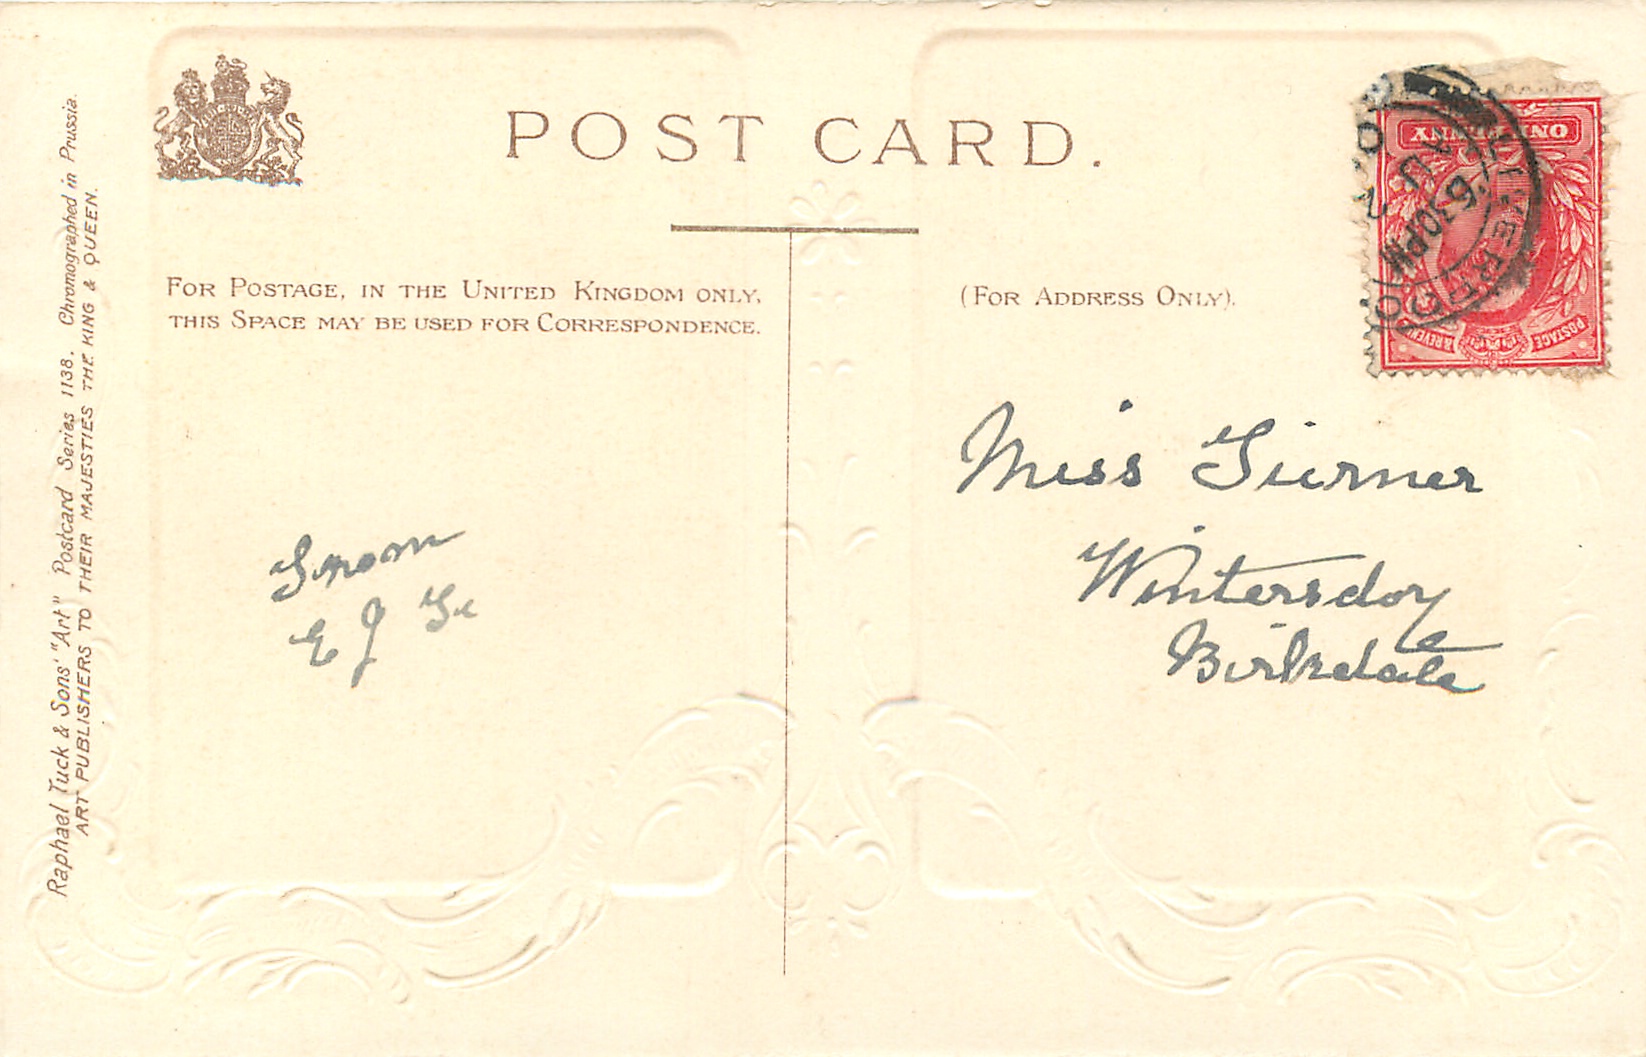 POST CARD.
FOR POSTAGE, IN THE UNITED KINGDOM ONLY,
THIS SPACE MAY BE USED FOR CORRESPONDENCE.
(FOR ADDRESS ONLY).
Raphael Tuck & Sons' "Art" Postcard Series 1138. Chromographed in Prussia.
ART PUBLISHERS TO THEIR MAJESTIES THE KING & QUEEN.
ONE PENNY
POSTAGE & REVENUE
LIVERPOOL
6.30PM
AU 2
Miss Turner
Wintersdoy
Birkdale
E J